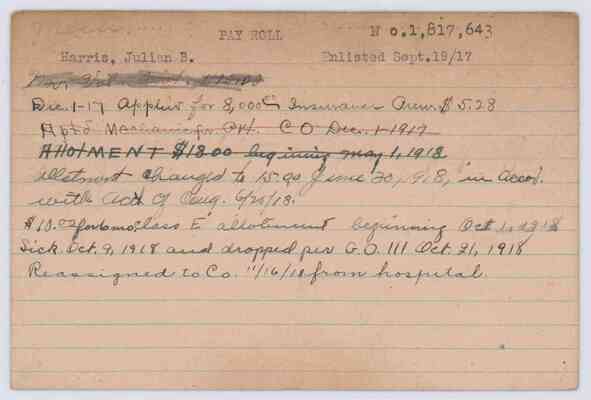 PAY ROLL No.1,817,643
Harris, Julian B. Enlisted Sept.19/17
Dec. 1-17 Applied for 8,000 Insurance Prem. $5.28
Apt'd Mechanic fr Pvt. C O Dec. 1-1917
AllotMENT $18.00 beginning may 1, 1918
allotment changed to 15.00 June 30, 1918, in Accord.
with Act of Cong. 6/20/18.
$10.00 for 6 mo. Class E allotment beginning Oct 1, 1918
Sick Oct. 9, 1918 and dropped per G.O. 111 Oct. 31, 1918
Reassigned to Co. 11/16/18 from hospital.